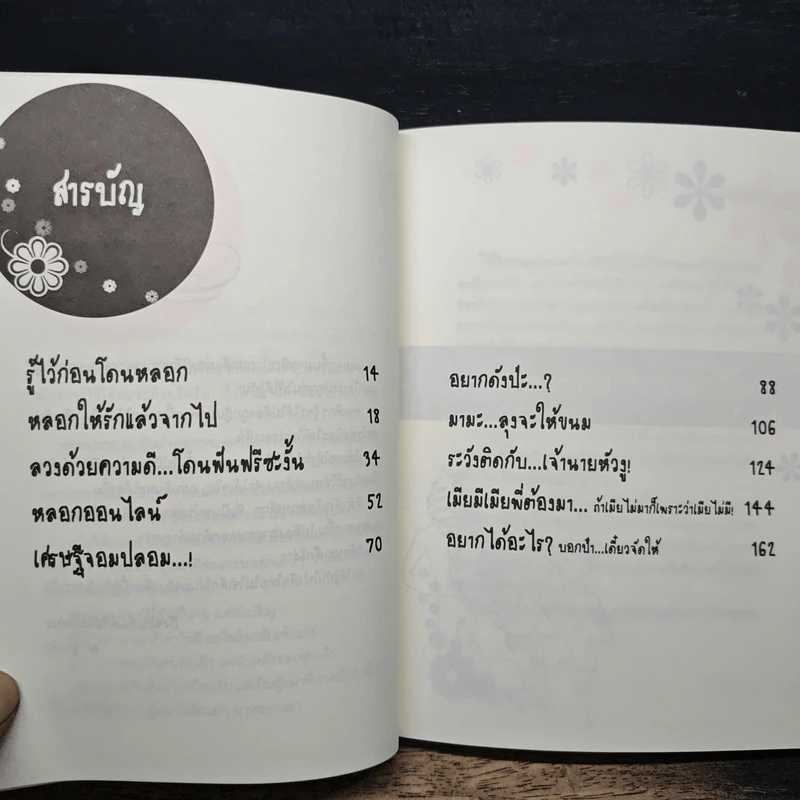 สารบัญ
รู้ไว้ก่อนโดนหลอก 14
หลอกให้รักแล้วจากไป 18
ลวงด้วยความดี...โดนฟันฟรีซะงั้น 34
หลอกออนไลน์ 52
เศรษฐีจอมปลอม...! 70
อยากดังป่ะ...? 88
มามะ...ลุงจะให้ขนม 106
ระวังติดกับ...เจ้านายหัวงู! 124
เมียมีเมียพี่ต้องมา... ถ้าเมียไม่มาก็เพราะว่าเมียไม่มี! 144
อยากได้อะไร? บอกป๋า...เดี๋ยวจัดให้ 162